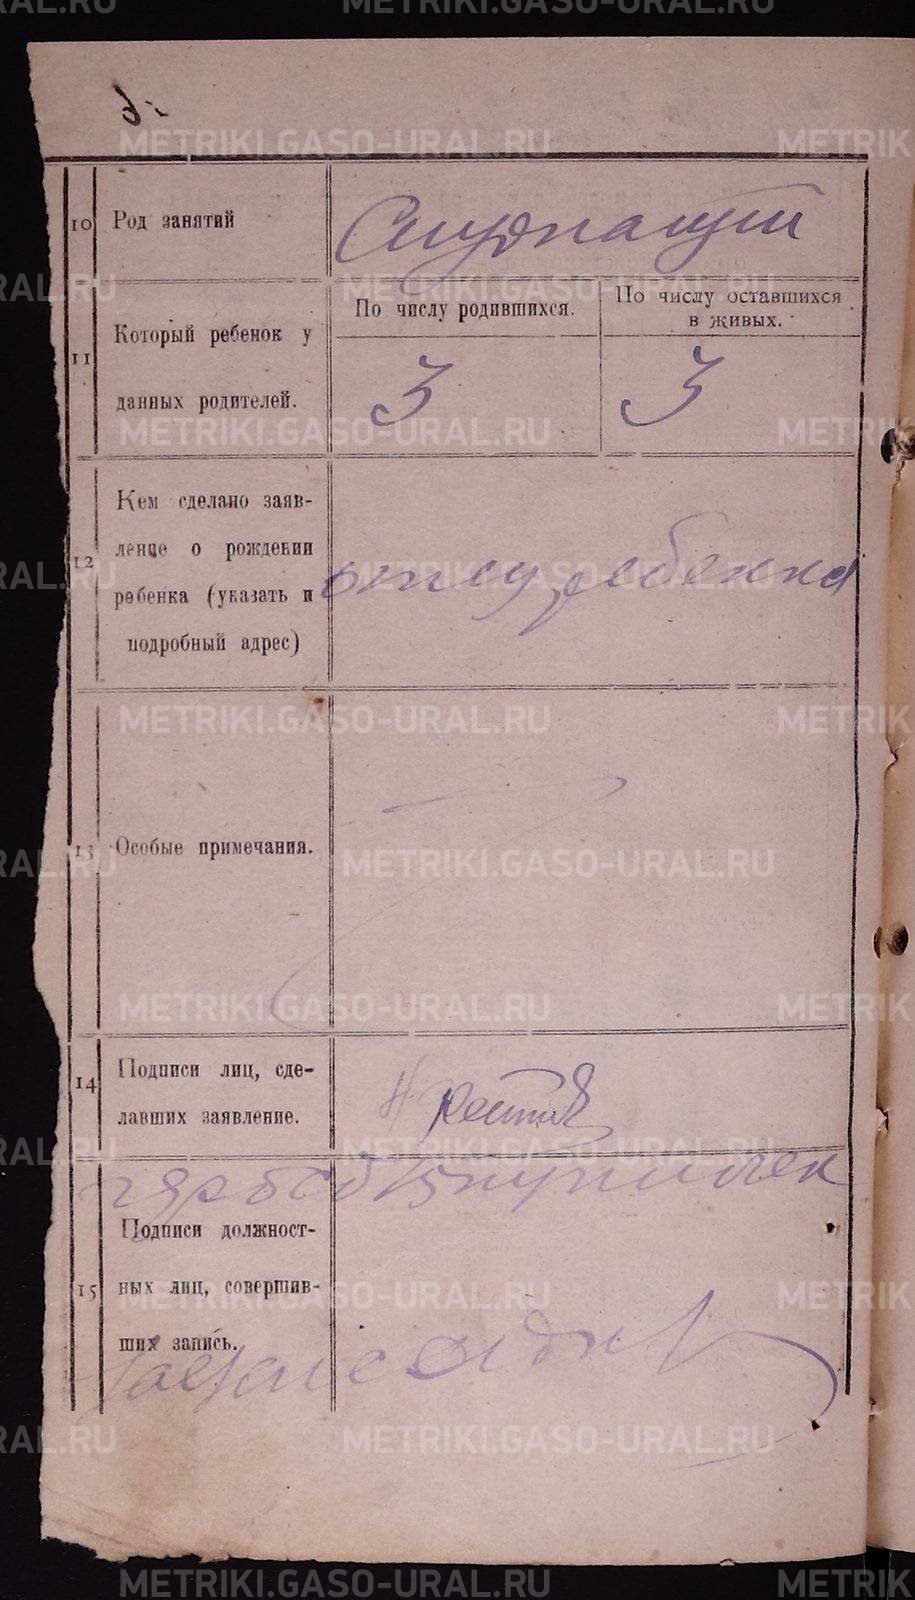 METRIKI.GASO-URAL.RU
10 Род занятий
11 Который ребенок у
данных родителей.
По числу родившихся.
3
По числу оставшихся
в живых.
3
12 Кем сделано заяв-
ление о рождении
ребенка (указать и
подробный адрес)
отец ребенка
13 Особые примечания.
14 Подписи лиц, сде-
лавших заявление.
15 Подписи должност-
ных лиц, совершив-
ших запись.